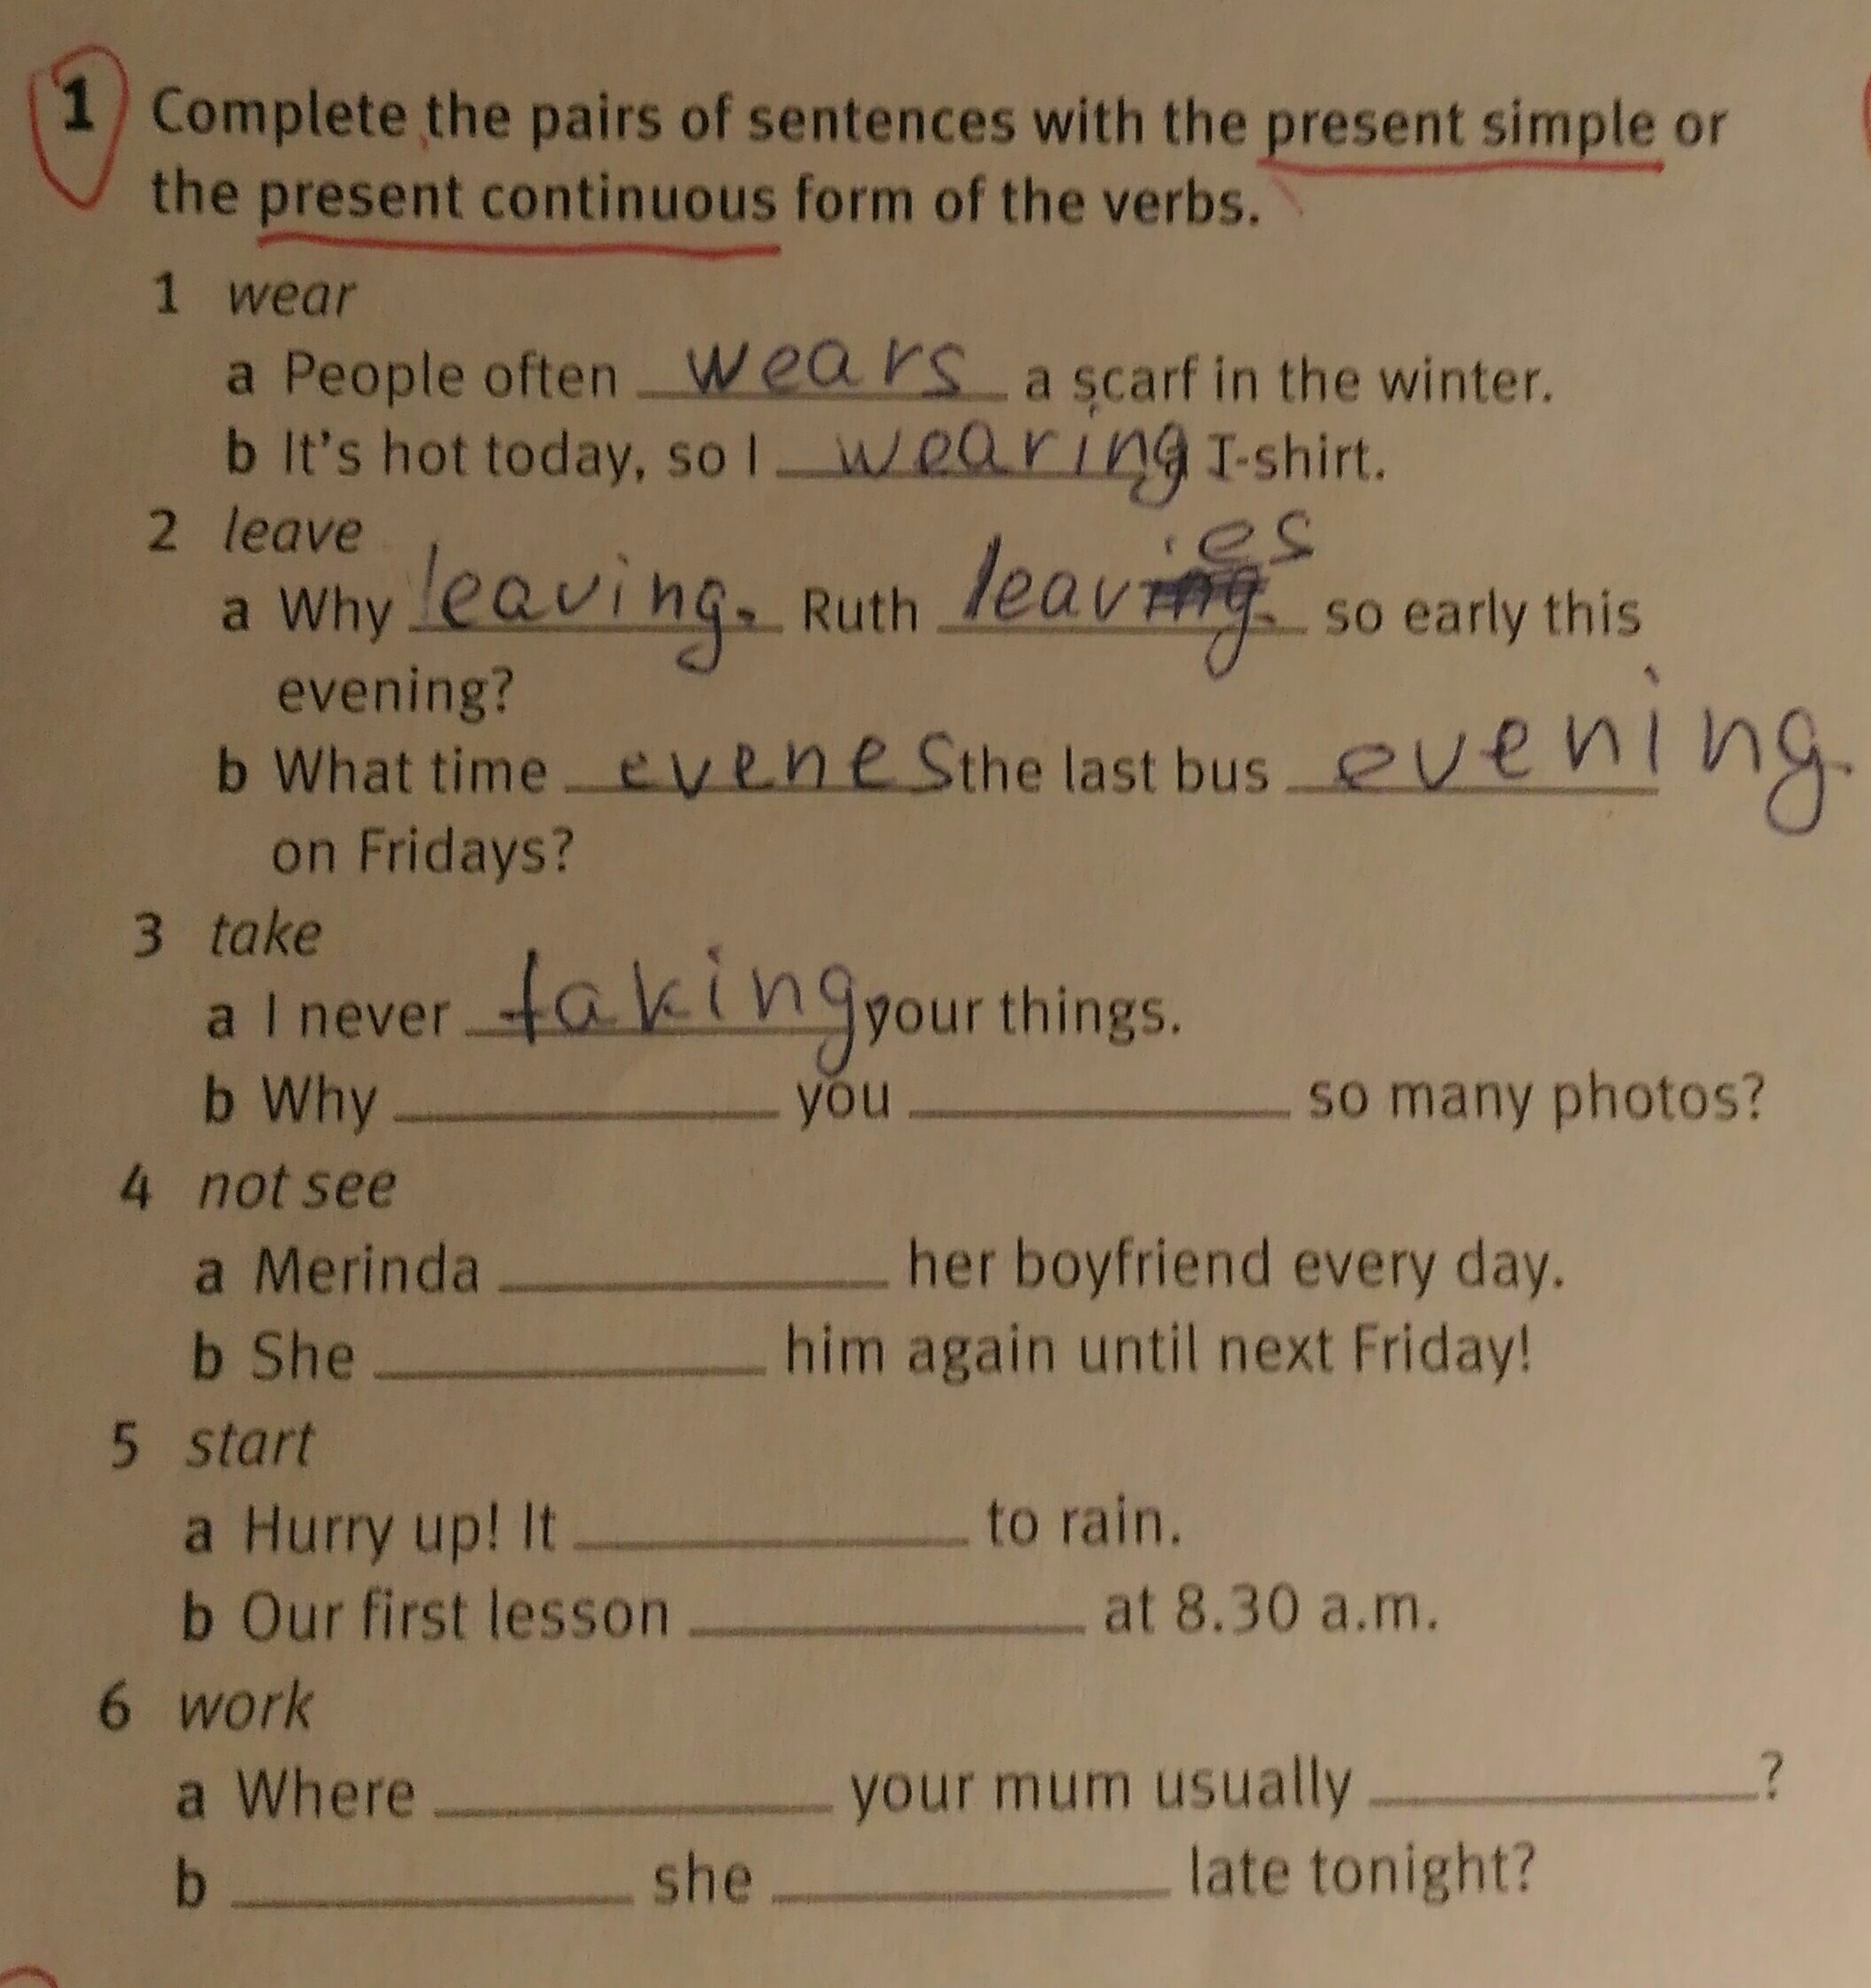 1 Complete the pairs of sentences with the present simple or
the present continuous form of the verbs.
1 wear
a People often wears a scarf in the winter.
b It's hot today, so I wearing T-shirt.
2 leave
a Why leaving. Ruth leaves so early this
evening?
b What time evenes the last bus evening.
on Fridays?
3 take
a I never taking your things.
b Why ____ you ____ so many photos?
4 not see
a Merinda ____ her boyfriend every day.
b She ____ him again until next Friday!
5 start
a Hurry up! It ____ to rain.
b Our first lesson ____ at 8.30 a.m.
6 work
a Where ____ your mum usually ____?
b ____ she ____ late tonight?